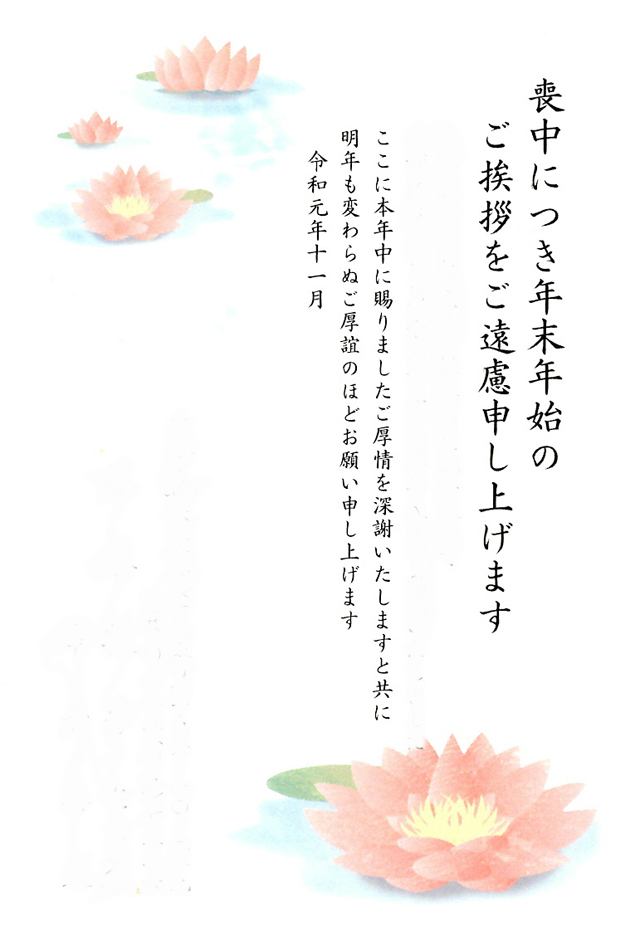 喪中につき年末年始の
ご挨拶をご遠慮申し上げます
ここに本年中に賜りましたご厚情を深謝いたしますと共に
明年も変わらぬご厚誼のほどお願い申し上げます
令和元年十一月